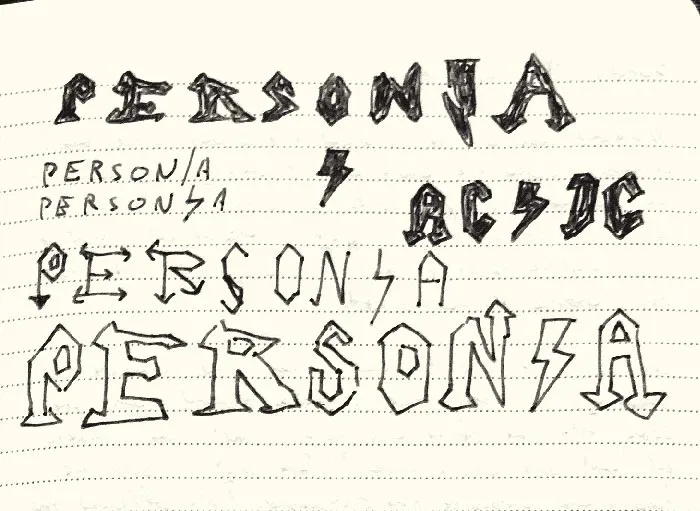 PERSON⚡A
PERSON/A
PERSON⚡A
⚡
AC⚡DC
PERSON⚡A
PERSON⚡A